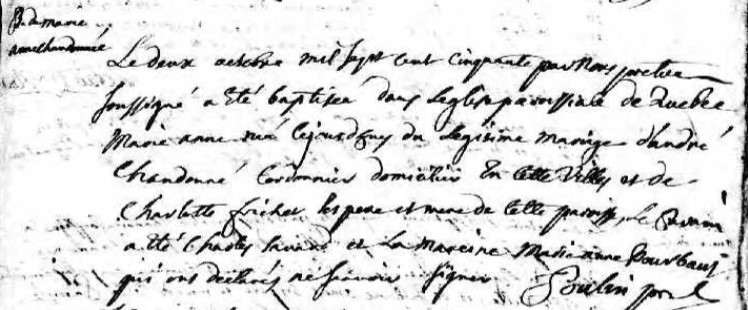 B. de marie
anne chandonné
Le deux octobre mil sept cent cinquante par Nous prêtre
soussigné a été baptisée dans l'eglise paroissiale de Quebec
Marie anne née le jourd'huy du Legitime mariage d'andré
Chandonné Cordonnier domicilié En cette Ville et de
Charlotte frichet les pere et mere de cette paroisse, Le Parain
a été Charles Savard et La Mareine Marie anne
qui ont declarés ne sçavoir signer Poulin